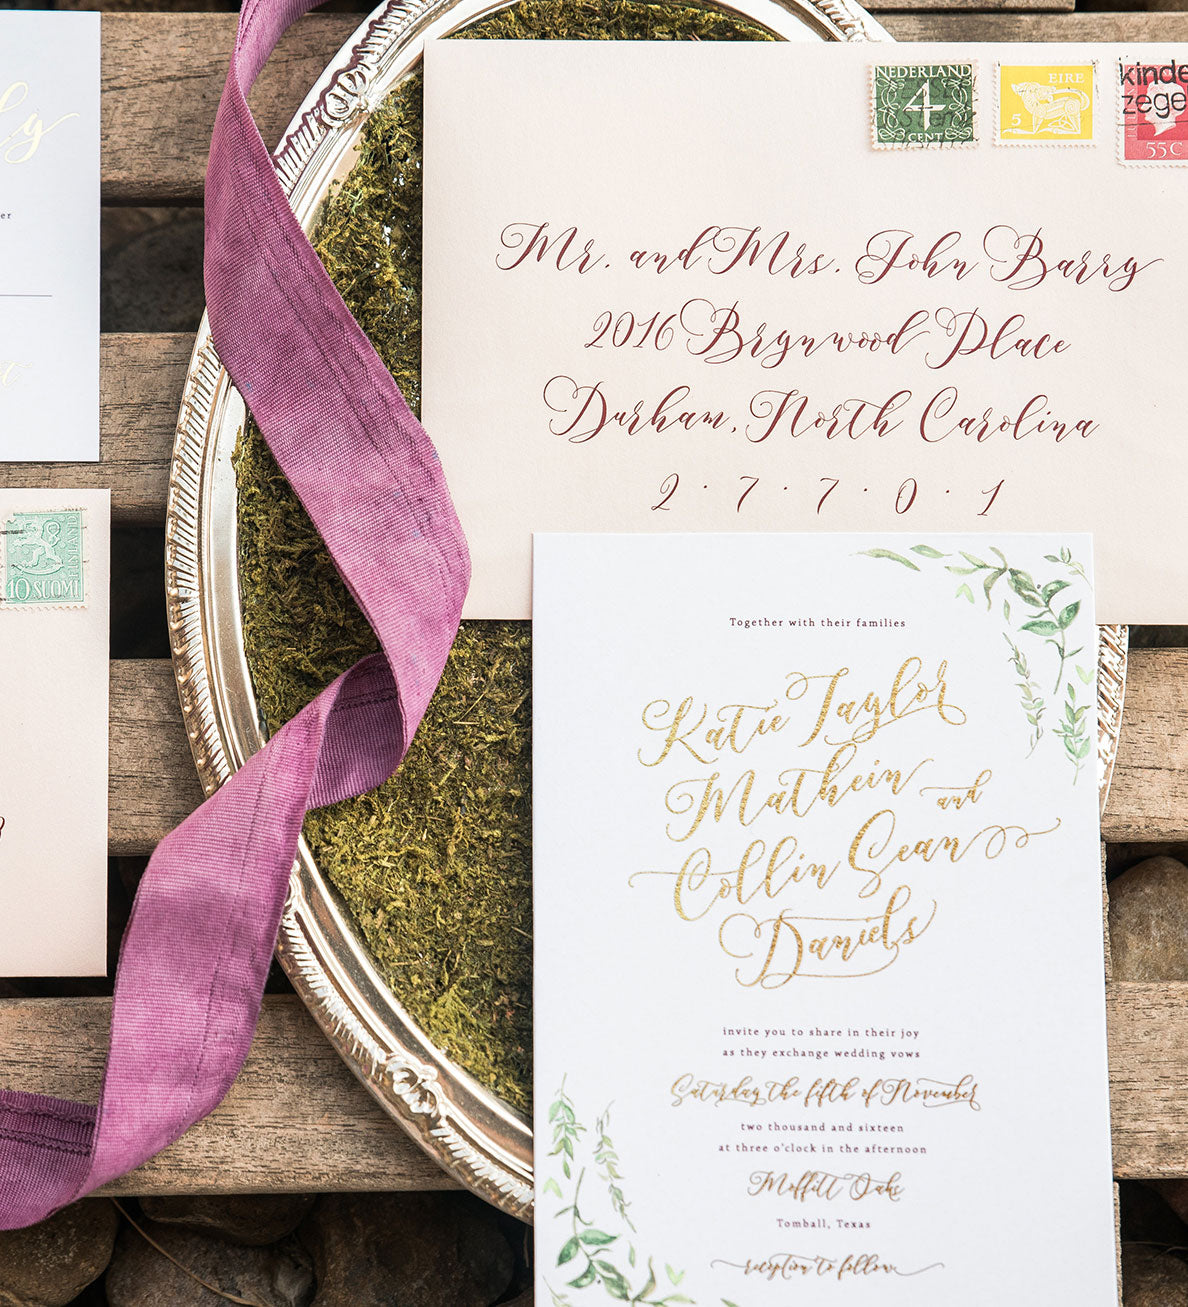 NEDERLAND
4
CENT
EIRE
5
kinde
zege
55C
Mr. and Mrs. John Barry
2016 Brynwood Place
Durham, North Carolina
2 · 7 · 7 · 0 · 1
10 SUOMI
FINLAND
Together with their families
Katie Taylor
Mathein and
Collin Sean
Daniels
invite you to share in their joy
as they exchange wedding vows
Saturday the fifth of November
two thousand and sixteen
at three o'clock in the afternoon
Moffitt Oaks
Tomball, Texas
reception to follow